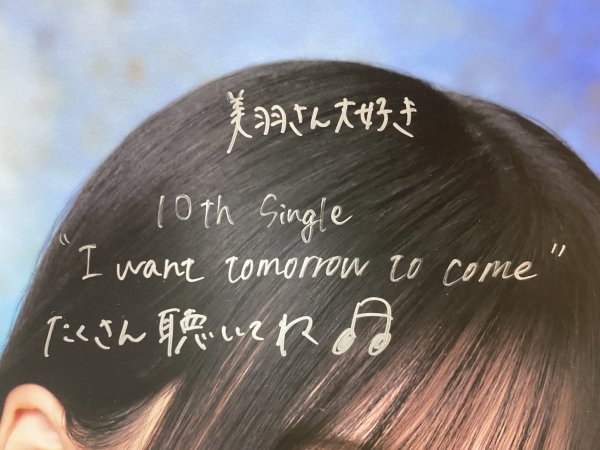 美羽さん大好き
10th Single
"I want tomorrow to come"
たくさん聴いてね